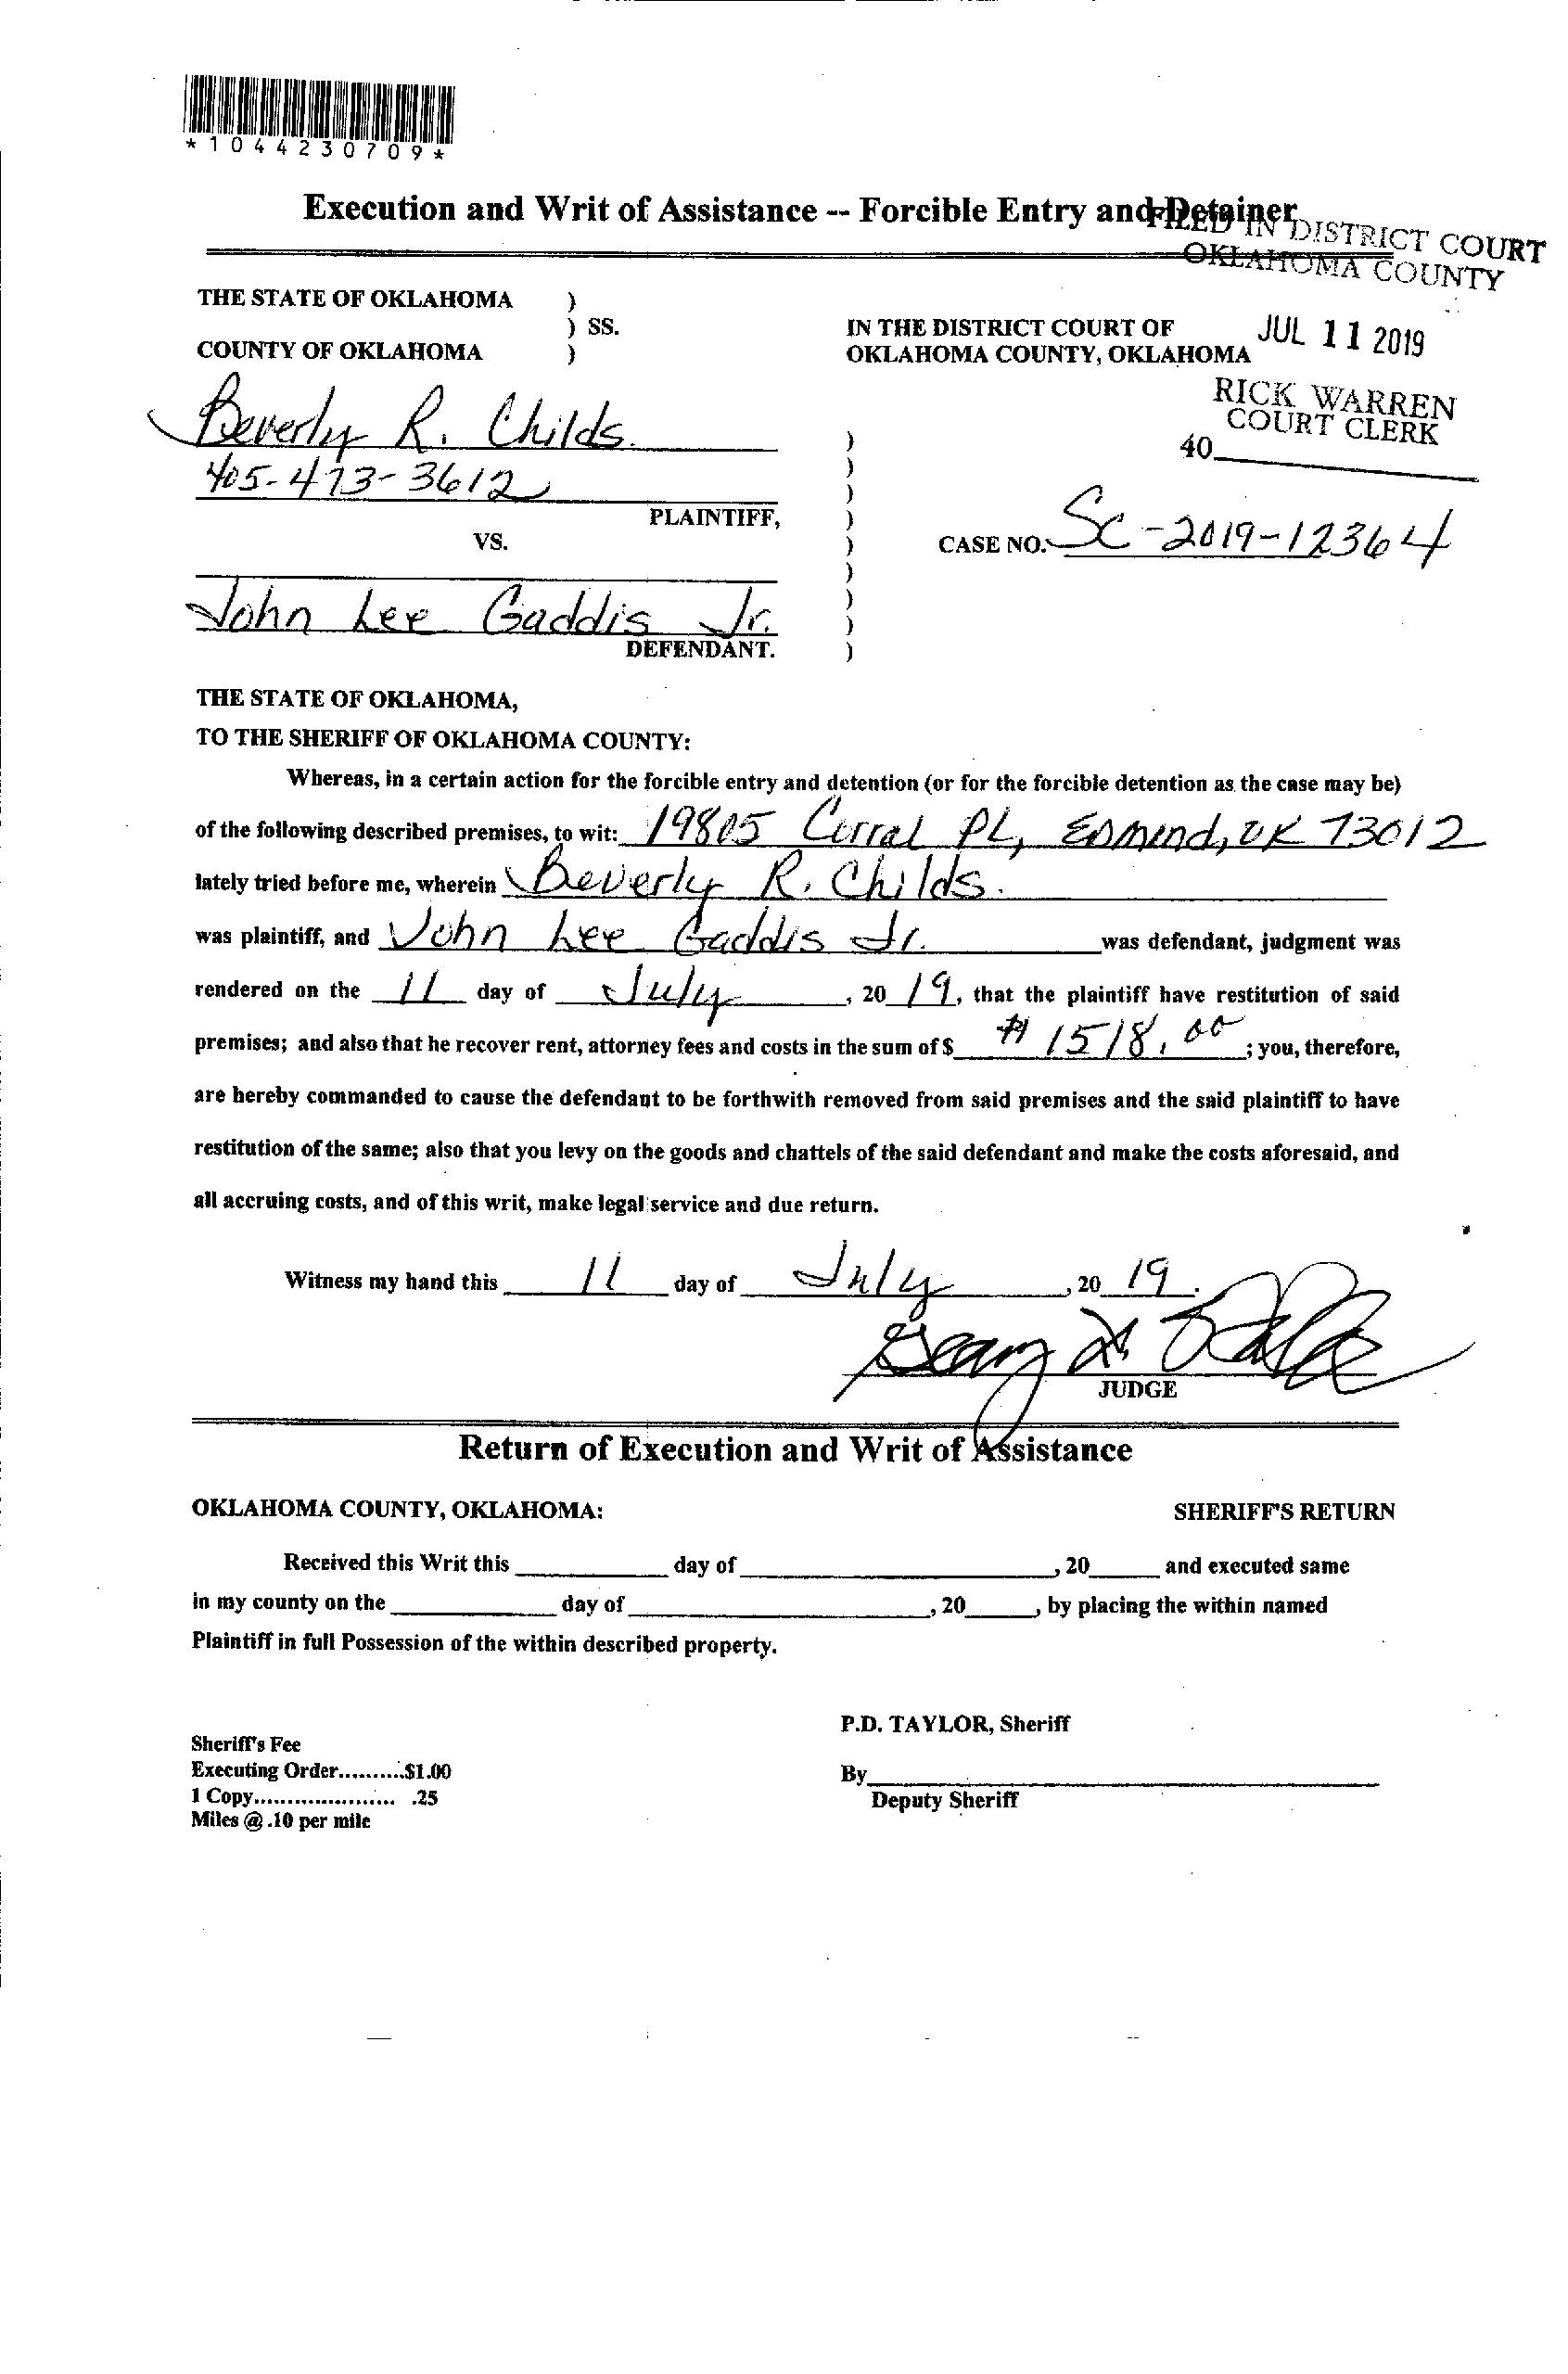 *1044230709*
Execution and Writ of Assistance -- Forcible Entry and Detainer
FILED IN DISTRICT COURT
OKLAHOMA COUNTY
THE STATE OF OKLAHOMA )
) SS.
COUNTY OF OKLAHOMA )
IN THE DISTRICT COURT OF
OKLAHOMA COUNTY, OKLAHOMA
JUL 11 2019
RICK WARREN
COURT CLERK
40
Beverly R. Childs
405-473-3612
PLAINTIFF,
VS.
CASE NO. SC-2019-12364
John Lee Gaddis Jr.
DEFENDANT.
THE STATE OF OKLAHOMA,
TO THE SHERIFF OF OKLAHOMA COUNTY:
Whereas, in a certain action for the forcible entry and detention (or for the forcible detention as the case may be)
of the following described premises, to wit: 19805 Corral PL, Edmond, OK 73012
lately tried before me, wherein Beverly R. Childs.
was plaintiff, and John Lee Gaddis Jr. was defendant, judgment was
rendered on the 11 day of July, 2019, that the plaintiff have restitution of said
premises; and also that he recover rent, attorney fees and costs in the sum of $ # 1518.00; you, therefore,
are hereby commanded to cause the defendant to be forthwith removed from said premises and the said plaintiff to have
restitution of the same; also that you levy on the goods and chattels of the said defendant and make the costs aforesaid, and
all accruing costs, and of this writ, make legal service and due return.
Witness my hand this 11 day of July, 20 19.
JUDGE
Return of Execution and Writ of Assistance
OKLAHOMA COUNTY, OKLAHOMA: SHERIFF'S RETURN
Received this Writ this ____ day of ____, 20____ and executed same
in my county on the ____ day of ____, 20____, by placing the within named
Plaintiff in full Possession of the within described property.
P.D. TAYLOR, Sheriff
Sheriff's Fee
Executing Order..........$1.00
By____
1 Copy..................... .25
Deputy Sheriff
Miles @ .10 per mile